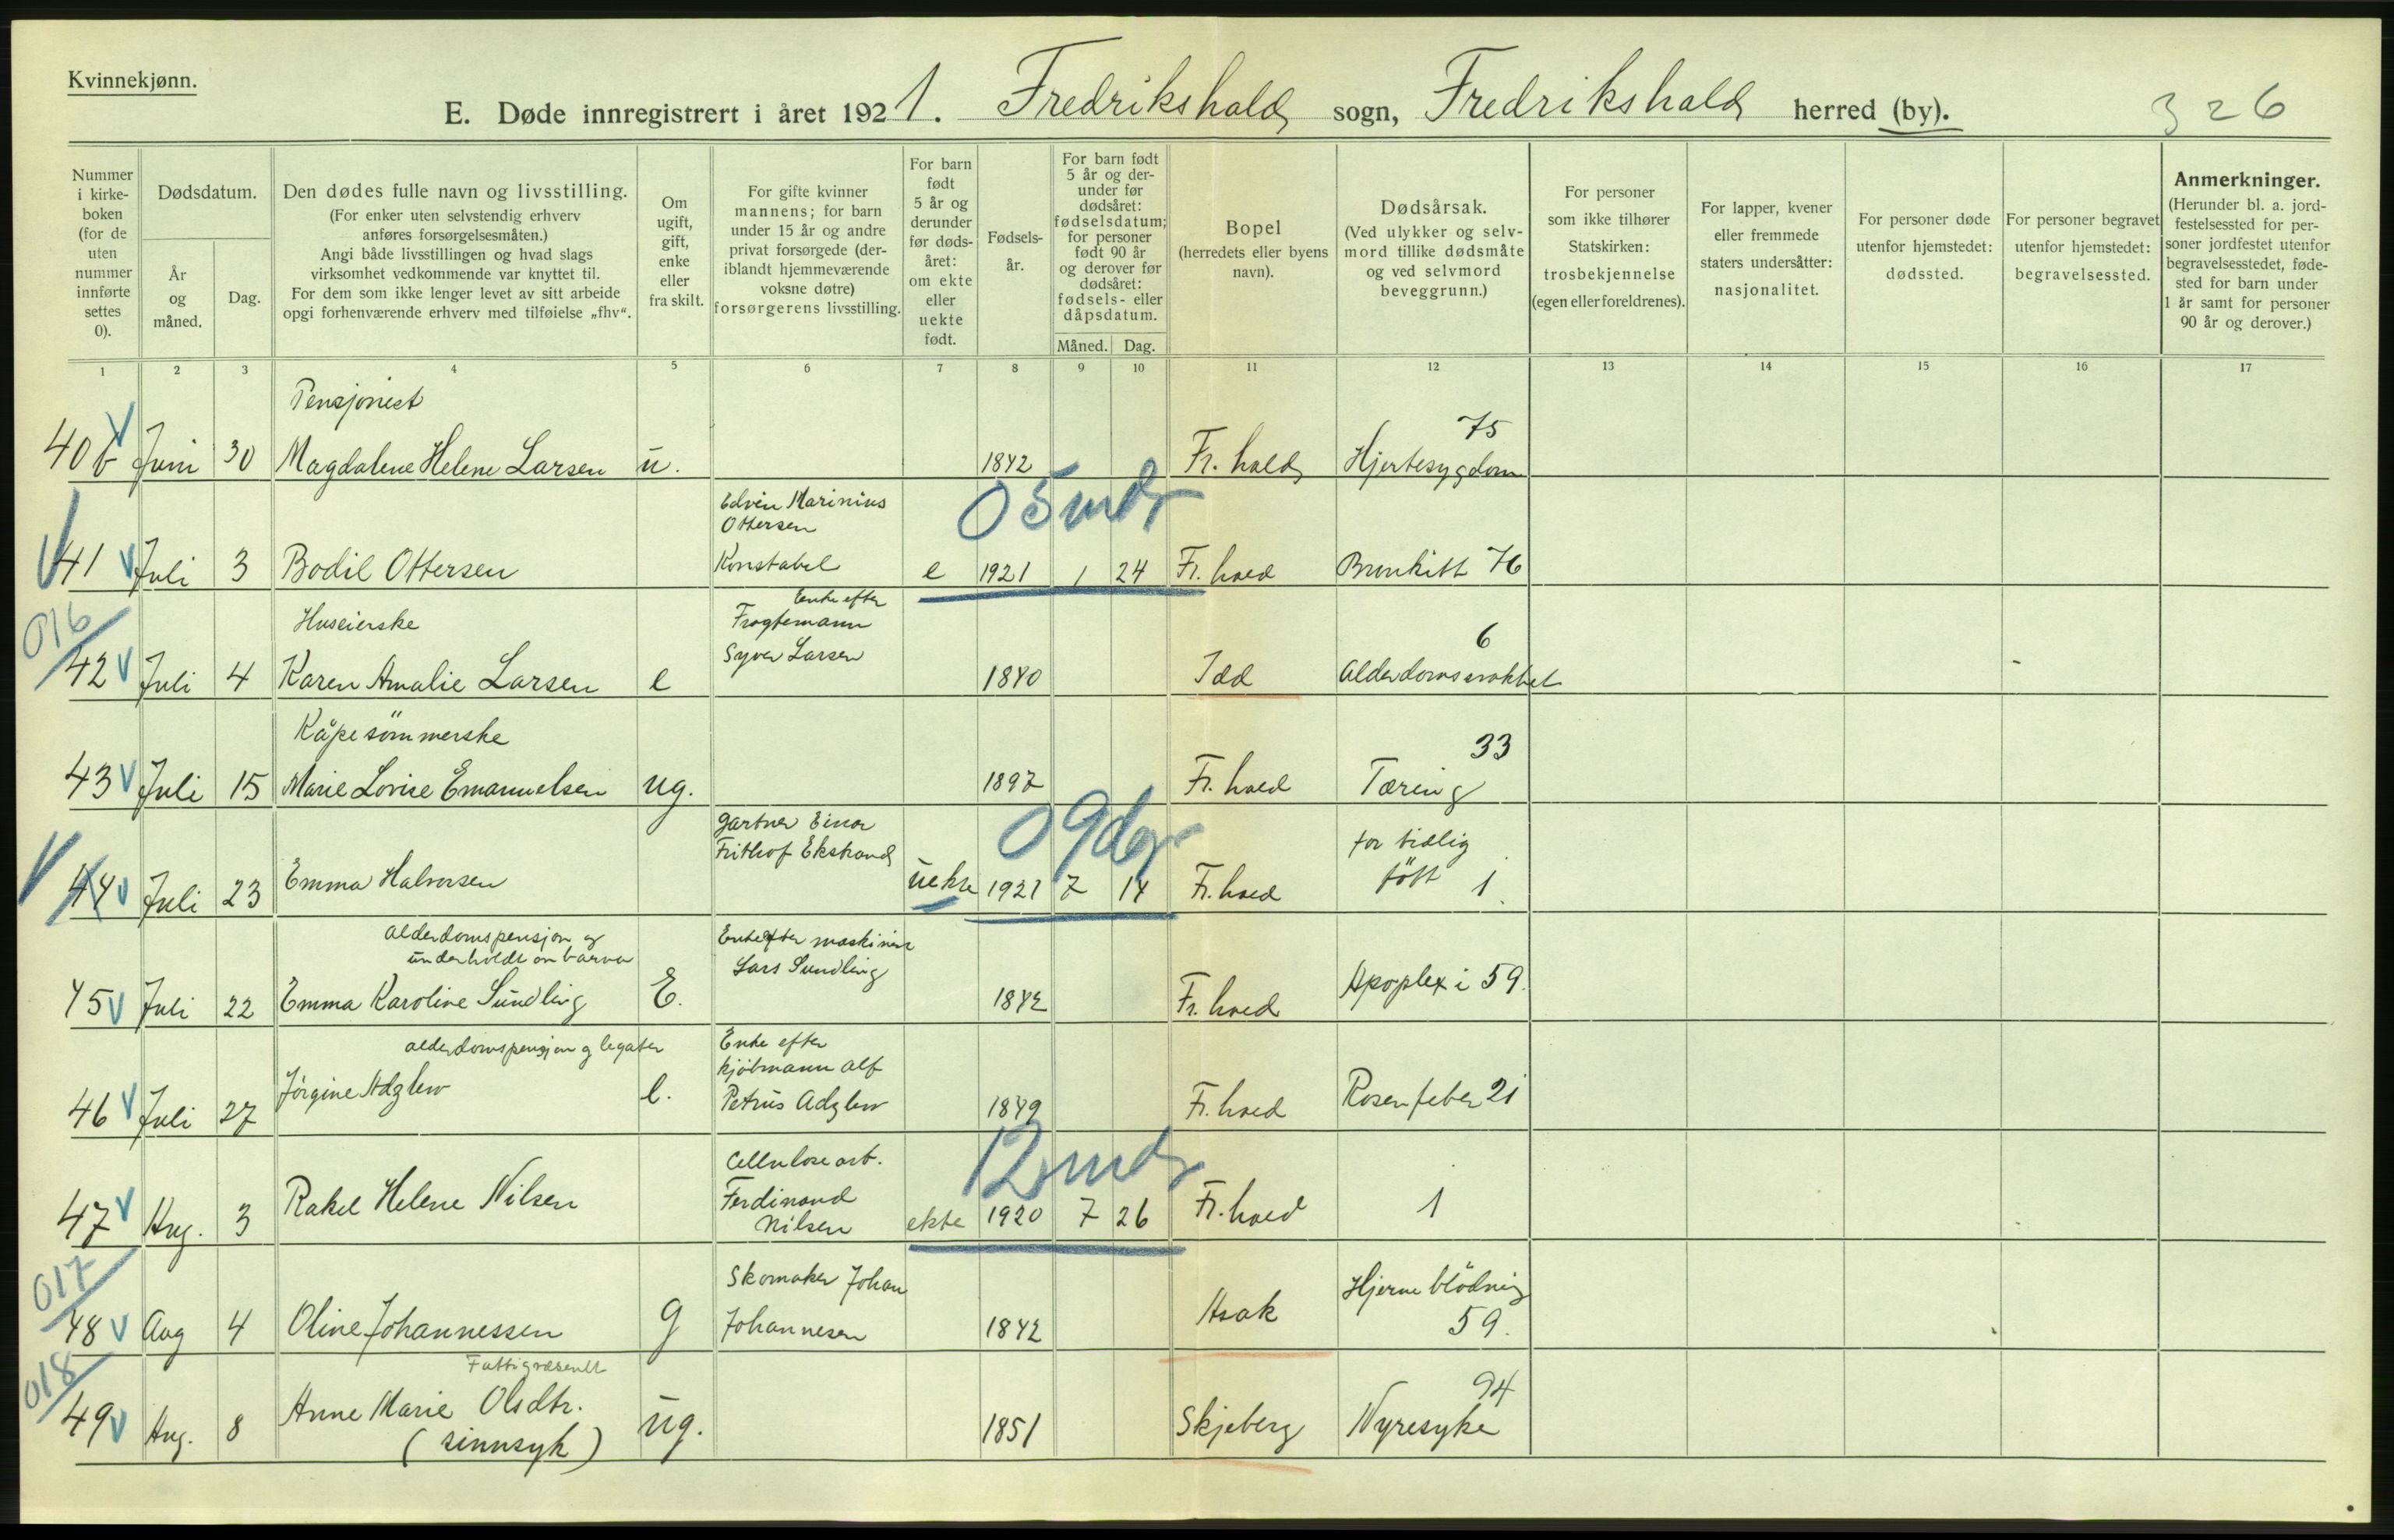 Kvinnekjønn.
E. Døde innregistrert i året 1921. Fredrikshald sogn, Fredrikshald herred (by). 326
Nummer i kirkeboken (for de uten nummer innførte settes 0).
Dødsdatum.
År og måned.
Dag.
Den dødes fulle navn og livsstilling.
(For enker uten selvstendig erhverv anføres forsørgelsesmåten.)
Angi både livsstillingen og hvad slags virksomhet vedkommende var knyttet til.
For dem som ikke lenger levet av sitt arbeide opgi forhenværende erhverv med tilføielse „fhv“.
Om ugift, gift, enke eller fra skilt.
For gifte kvinner mannens; for barn under 15 år og andre privat forsørgede (deriblandt hjemmeværende voksne døtre) forsørgerens livsstilling.
For barn født 5 år og derunder før dødsåret: om ekte eller uekte født.
Fødselsår.
For barn født 5 år og derunder før dødsåret: fødselsdatum; for personer født 90 år og derover før dødsåret: fødsels- eller dåpsdatum.
Måned. Dag.
Bopel
(herredets eller byens navn).
Dødsårsak.
(Ved ulykker og selvmord tillike dødsmåte og ved selvmord beveggrunn.)
For personer som ikke tilhører Statskirken: trosbekjennelse (egen eller foreldrenes).
For lapper, kvener eller fremmede staters undersåtter: nasjonalitet.
For personer døde utenfor hjemstedet: dødssted.
For personer begravet utenfor hjemstedet: begravelsessted.
Anmerkninger.
(Herunder bl. a. jordfestelsessted for personer jordfestet utenfor begravelsesstedet, fødested for barn under 1 år samt for personer 90 år og derover.)
1 2 3 4 5 6 7 8 9 10 11 12 13 14 15 16 17
Pensjonist
75
40 V Juni 30 Magdalene Helene Larsen u. 1842 Fr. hald Hjertesygdom
05 mdr
Edvin Marinius
Ottersen
41 V Juli 3 Bodil Ottersen Konstabel e 1921 1 24 Fr. hald Bronkitt 76
016
Enke efter
Huseierske Fragtemann
6
Syver Larsen
42 V Juli 4 Karen Amalie Larsen e 1840 Idd Alderdomssvakhet
Kåpesömmerske
33
43 V Juli 15 Marie Lovise Emanuelsen ug. 1897 Fr. hald Tæring
09 dgr
Gartner Einar
Frithof Ekstrand
for tidlig
44 V Juli 23 Emma Halvorsen uekte 1921 7 14 Fr. hald fött 1
alderdomspensjon og
underholdt av barna
Enke efter maskinist
Lars Sundling
45 V Juli 22 Emma Karoline Sundling E. 1842 Fr. hald Apoplexi 59.
alderdomspensjon og legater
Enke efter
kjöbmann Alf
46 V Juli 27 Jörgine Adzlew e. Petrus Adzlew 1849 Fr. hald Rosenfeber 21
12 mdr
Cellulose arb.
Ferdinand
47 V Aug. 3 Rakel Helene Nilsen Nilsen ekte 1920 7 26 Fr. hald 1
017
Skomaker Johan
Hjerneblödning
48 V Aug 4 Oline Johannessen g Johannesen 1842 Asak 59.
018
Fattigvæsenet
94
49 V Aug. 8 Anne Marie Olsdtr. ug. 1851 Skjeberg Nyresyke
(sinnsyk)